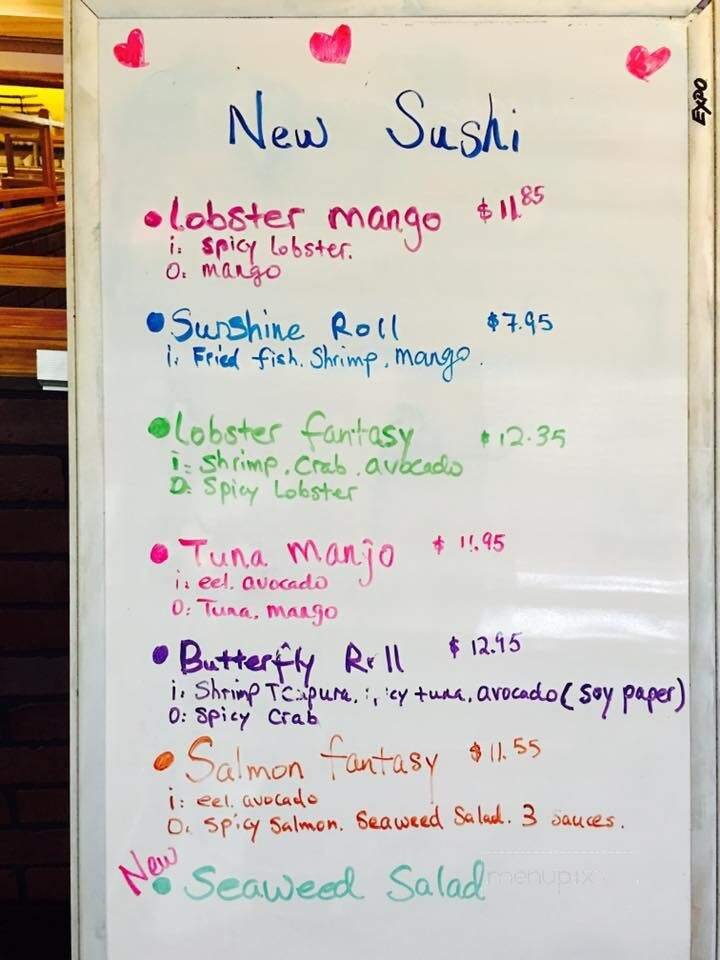 New Sushi
EXPO
• Lobster mango $11.85
i: Spicy Lobster.
O: mango
• Sunshine Roll $7.95
i: Fried fish. Shrimp, mango.
• Lobster fantasy $12.35
i: Shrimp. Crab. avocado
O: Spicy Lobster
• Tuna manjo $11.95
i: eel. avocado
O: Tuna, mango
• Butterfly Roll $12.95
i: Shrimp tuna, avocado (soy paper)
O: Spicy Crab
• Salmon fantasy $11.55
i: eel. avocado
O: Spicy Salmon. Seaweed Salad. 3 sauces.
New
• Seaweed Salad
menupix